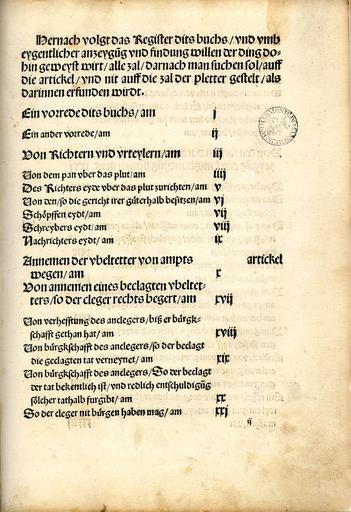 Hernach volgt das Register dits buchs/ vnd vmb
eygentlicher anzeygūg vnd findung willen der ding do-
hin geweyst wirt/ alle zal/ darnach man suchen sol/ auff
die artickel/ vnd nit auff die zal der pletter gestelt/ als
darinnen erfunden wirdt.
Ein vorrede dits buchs/ am j
Ein ander vorrede/ am ij
Von Richtern vnd vrteylern/ am iij
Von dem pan vber das plut/ am iiij
Des Richters eyde vber das plut zurichten/ am v
Von den/ so die gericht irer güterhalb besitzen/ am vj
Schöpffen eydt/ am vij
Schreybers eydt/ am viij
Nachrichters eydt/ am ix
Annemen der vbeltetter von ampts artickel
wegen/ am x
Von annemen eines beclagten vbeltet-
ters/ so der cleger rechts begert/ am xvij
Von verhefftung des anclegers/ biß er bürgk-
schafft gethan hat/ am xviij
Von bürgkschafft des anclegers/ so der beclagt
die geclagten tat verneynet/ am xix
Von bürgkschafft des anclegers/ So der beclagt
der tat bekentlich ist/ vnd redlich entschuldigūg
sölcher tathalb furgibt/ am xx
So der cleger nit bürgen haben mag/ am xxj
ij